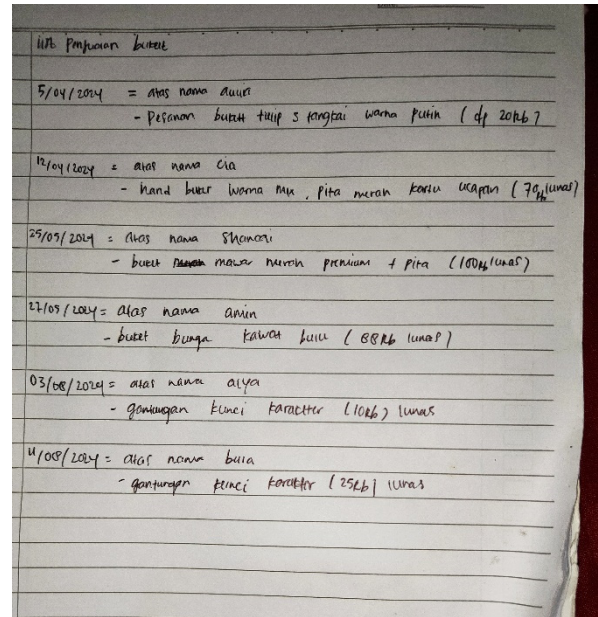 Penjualan buket
5/04/2024 = atas nama auuri
- Pesanan buket tulip 3 tangkai warna putih ( dp 20rb )
12/04/2024 = atas nama Cia
- hand buket warna , pita merah kartu ucapan ( 70rb lunas)
25/05/2024 = atas nama
- buket mawar merah premium + pita (100rb lunas)
27/05/2024 = atas nama amin
- buket bunga kawat bulu ( 88rb lunas )
03/08/2024 = atas nama alya
- gantungan kunci karakter (10rb) lunas
11/08/2024 = atas nama bula
- gantungan kunci karakter (25rb) lunas